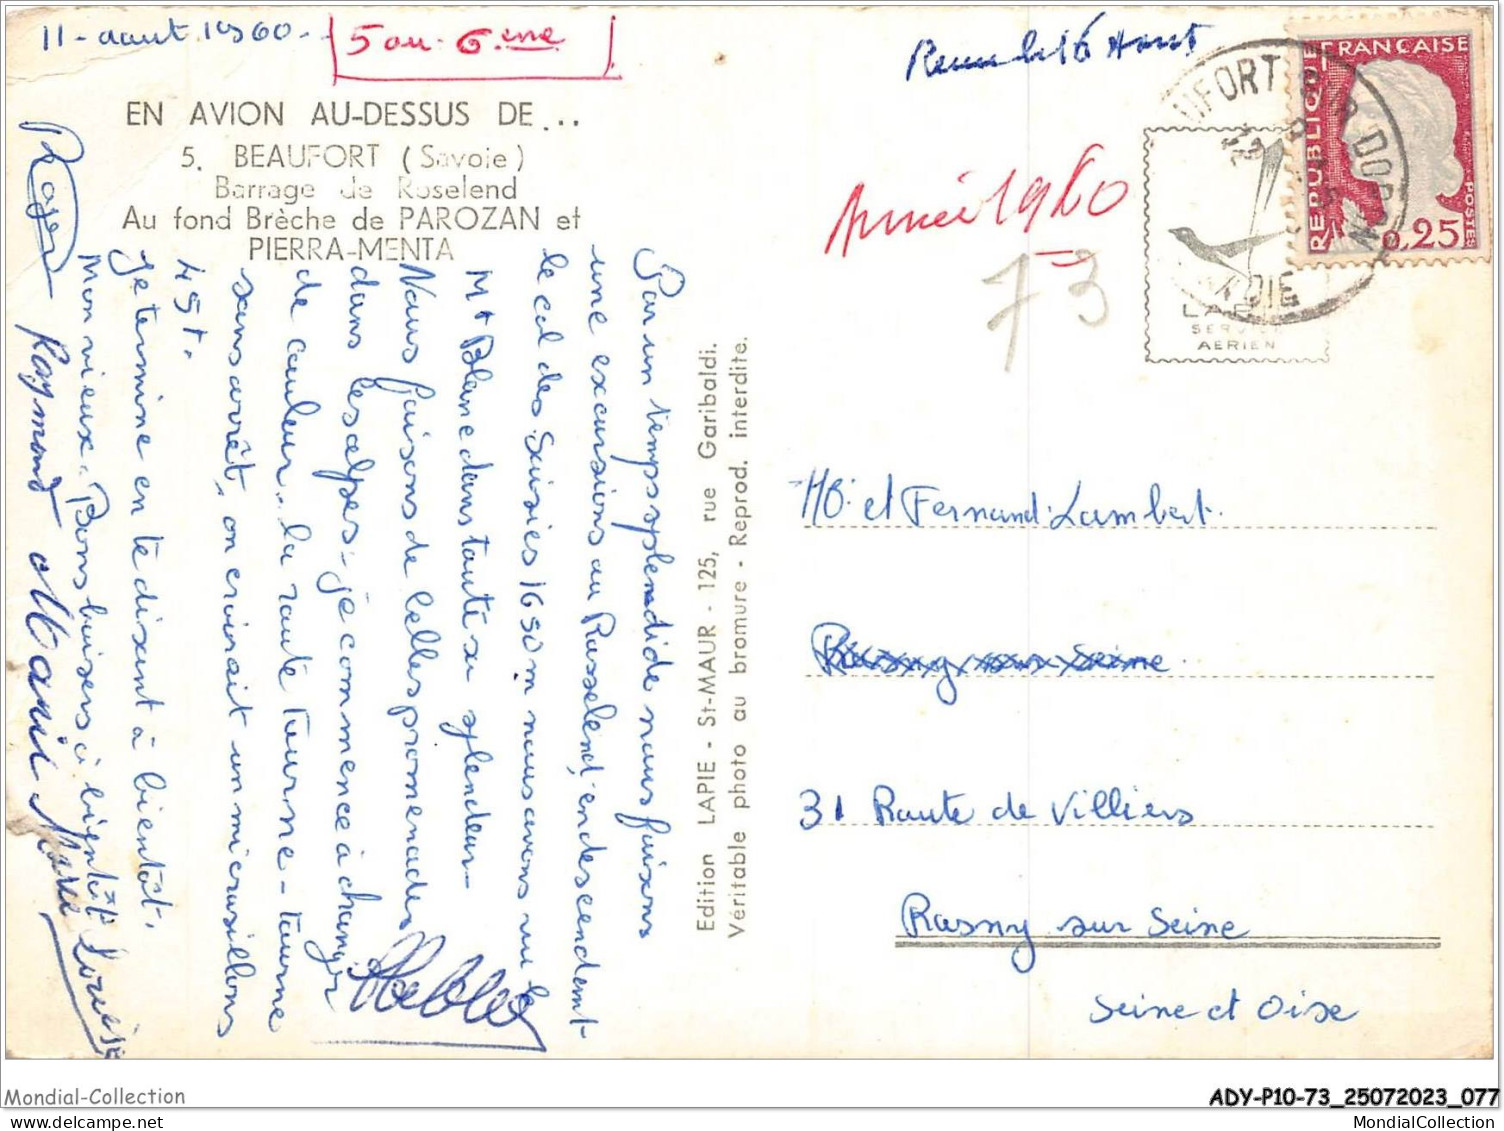 11 - aout 1960 -
5 ou - 6 eme
EN AVION AU-DESSUS DE...
5. BEAUFORT (Savoie)
Barrage de Roselend
Au fond Brèche de PAROZAN et
PIERRA-MENTA
Par un temps splendide nous faisons
une excursions au Rosselend, en descendant
le col des Saisies 1650 m nous avons vu le
Mt Blanc dans toute sa splendeur -
Nous faisons de belles promenades
dans les alpes - je commence à changer
de couleur - la route tourne - tourne
sans arrêt, on croirait un
45t.
Je termine en te disant à bientôt.
Mon vieux. Bons baisers à bientôt
Roger Raymond Marie Louise
Edition LAPIE - St-MAUR - 125, rue Garibaldi.
Véritable photo au bromure - Reprod. interdite.
le 16 Aout
Année 1960
73
RÉPUBLIQUE FRANÇAISE
POSTES
0,25
UFORT SUR DORON
12
LAPIE
SERVICE
AERIEN
et Fernand Lambert.
31 Route de Villiers
Rosny sur Seine
Seine et Oise
Mondial-Collection
ADY-P10-73_25072023_077
MondialCollection